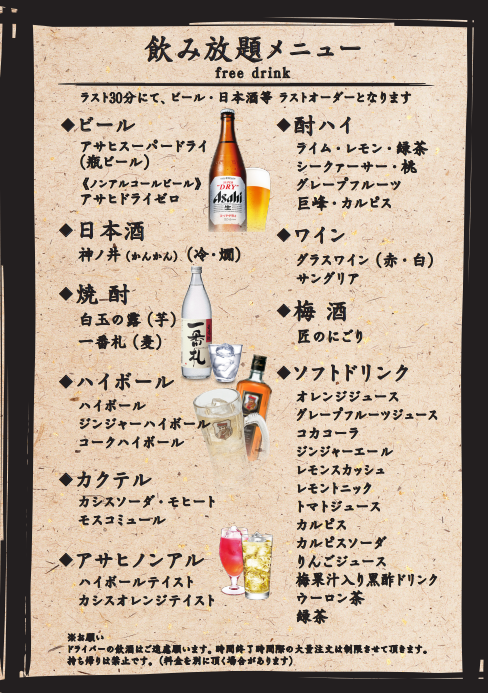 飲み放題メニュー
free drink
ラスト30分にて、ビール・日本酒等 ラストオーダーとなります
◆ビール
アサヒスーパードライ
（瓶ビール）
《ノンアルコールビール》
アサヒドライゼロ
◆日本酒
神ノ井（かんかん）（冷・燗）
◆焼 酎
白玉の露（芋）
一番札（麦）
◆ハイボール
ハイボール
ジンジャーハイボール
コークハイボール
◆カクテル
カシスソーダ・モヒート
モスコミュール
◆アサヒノンアル
ハイボールテイスト
カシスオレンジテイスト
DRY
Asahi
生
一番札
◆酎ハイ
ライム・レモン・緑茶
シークァーサー・桃
グレープフルーツ
巨峰・カルピス
◆ワイン
グラスワイン（赤・白）
サングリア
◆梅 酒
匠のにごり
◆ソフトドリンク
オレンジジュース
グレープフルーツジュース
コカコーラ
ジンジャーエール
レモンスカッシュ
レモントニック
トマトジュース
カルピス
カルピスソーダ
りんごジュース
梅果汁入り黒酢ドリンク
ウーロン茶
緑茶
※お願い
ドライバーの飲酒はご遠慮願います。時間終了時間際の大量注文は制限させて頂きます。
持ち帰りは禁止です。（料金を別に頂く場合があります）